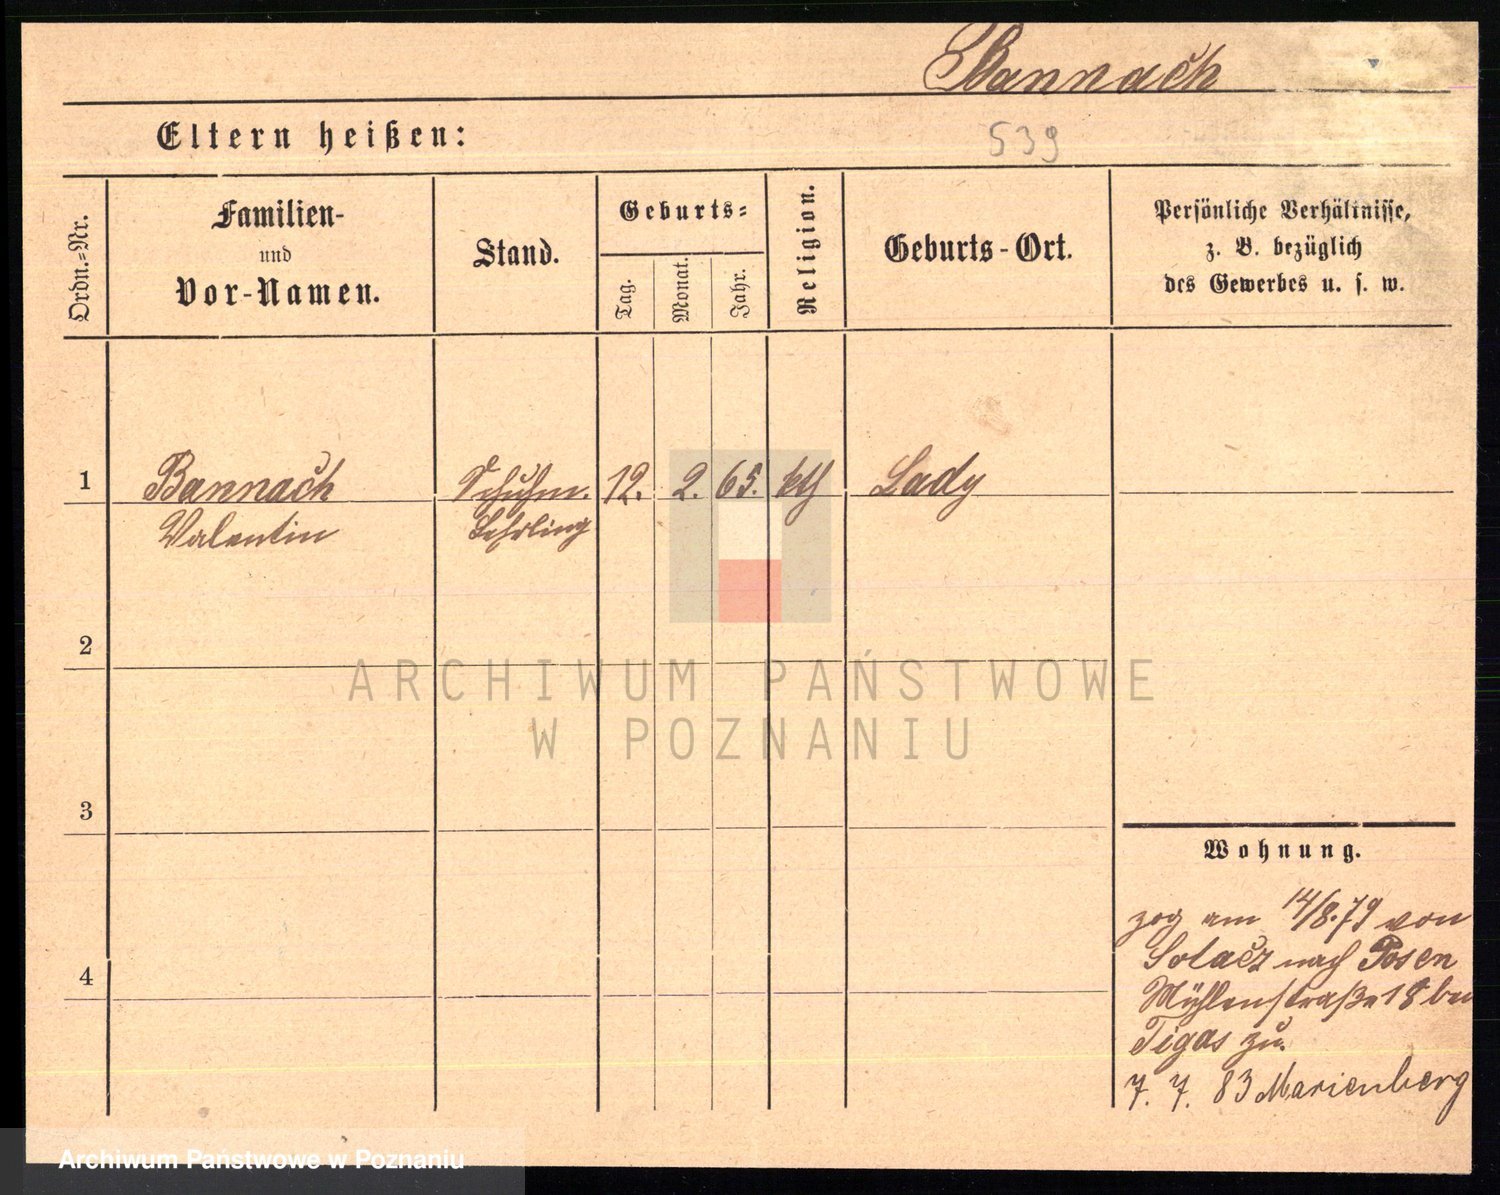 Bannach
Eltern heißen:
539
Ordn.-Nr.
Familien-
und
Vor-Namen.
Stand.
Geburts-
Tag.
Monat.
Jahr.
Religion.
Geburts-Ort.
Persönliche Verhältnisse,
z. B. bezüglich
des Gewerbes u. s. w.
1 Bannach Schuhm. 12. 2. 65. kth Lady
Valentin Lehrling
2
3
4
Wohnung.
zog am 14/8.79 von
Solacz nach Posen
Mühlenstraße 18 bei
Tigas zu.
7. 7. 83 Marienberg
ARCHIWUM PAŃSTWOWE
W POZNANIU
Archiwum Państwowe w Poznaniu